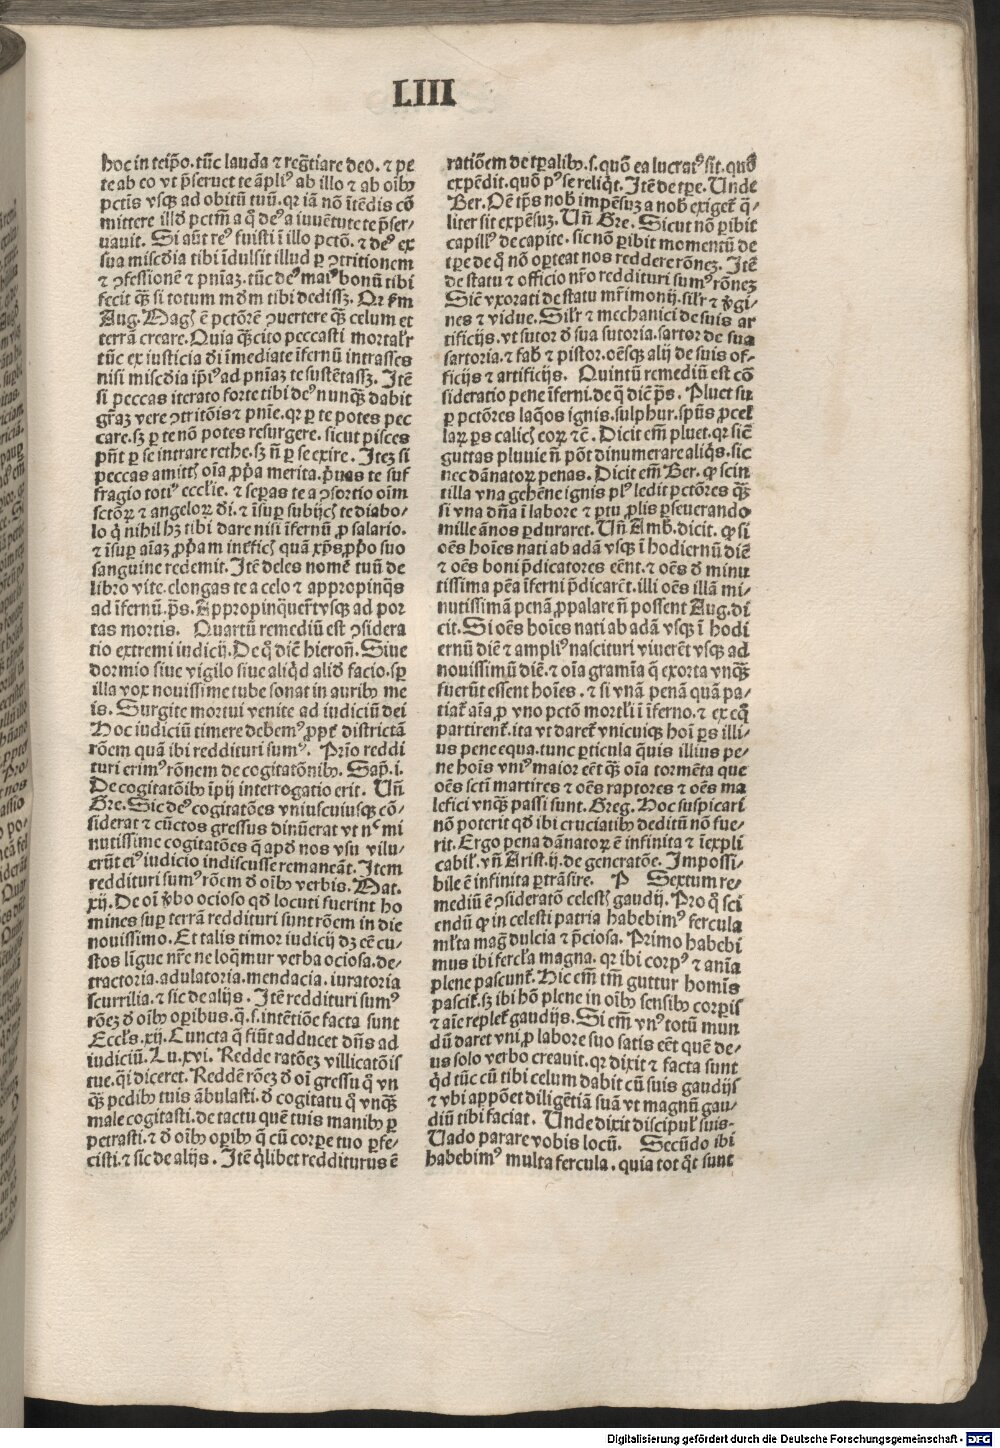 LIII
hoc in teip̄o. tūc lauda ⁊ reḡtiare deo. ⁊ pe
te ab eo vt p̄seruet te āpliꝰ ab illo ⁊ ab oībꝫ
pctīs vsqꝫ ad obitū tuū. qꝛ iā nō ītēdis cō
mittere illđ pctm̄ a q̄ deꝰ a iuuētute te p̄ser⸗
uauit. Si aūt reꝰ fuisti ī illo pctō. ⁊ deꝰ ex
sua miscđia tibi īdulsit illud ꝑ ꝯtritionem
⁊ ꝯfessionē ⁊ pnīaꝫ. tūc deꝰ maiꝰ bonū tibi
fecit qꝫ̄ si totum mđm tibi dedissꝫ. Qꝛ ẜm
Aug. Magꝭ ē pctōrē ꝯuertere qꝫ̄ celum et
terrā creare. Quia qꝫ̄cito peccasti mortalr̄
tūc ex iusticia đi īmediate īfernū intrasses
nisi miscđia ip̄iꝰ ad pnīaꝫ te sustētassꝫ. Itē
si peccas iterato forte tibi deꝰ nunqꝫ̄ dabit
gr̄aꝫ vere ꝯtritōis ⁊ pnīe. qꝛ ꝑ te potes pec
care. sꝫ ꝑ te nō potes resurgere. sicut pisces
pn̄t ꝑ se intrare rethe. sꝫ n̄ ꝑ se exire. Iteꝫ si
peccas amittꝭ oīa ꝓp̄a merita. p̄uas te suf
fragio totiꝰ ecclīe. ⁊ seꝑas te a ꝯsortio oīm
sctōꝝ ⁊ angeloꝝ đi. ⁊ īsuꝑ subijcꝭ te diabo⸗
lo q̇ nihil hꝫ tibi dare nisi īfernū ꝓ salario.
⁊ īsuꝑ aīaꝫ ꝓp̄am inẜficꝭ quā xp̄s ꝓp̄o suo
sanguine redemit. Itē deles nomē tuū de
libro vite. elongas te a celo ⁊ appropinq̄s
ad īfernū. p̄s. Appropinquer̄t vsqꝫ ad por
tas mortis. Quartū remediū est ꝯsidera
tio extremi iudicij. De q̇ diē hieron̄. Siue
dormio siue vigilo siue aliq̇d aliđ facio. sꝑ
illa vox nouissime tube sonat in auribꝫ me
is. Surgite mortui venite ad iudiciū dei
Hoc iudiciū timere debemꝰ. ꝓpt̄ districtā
rōem quā ibi reddituri sumꝰ. Prīo reddi
turi erimꝰ rōnem de cogitatōnibꝫ. Sap̄. i.
De cogitatōibꝫ īpij interrogatio erit. Vn̄
Gre. Sic deꝰ cogitatōes vniuscuiusqꝫ cō⸗
siderat ⁊ cūctos gressus dinūerat vt nᶜ mi
nutissime cogitatōes q̄ apđ nos vsu vilu⸗
erūt eiꝰ iudicio indiscusse remaneāt. Item
reddituri sumꝰ rōem đ oībꝫ verbis. Mat.
xij. De oī v̄bo ocioso qđ locuti fuerint ho
mines suꝑ terrā reddituri sunt rōem in die
nouissimo. Et talis timor iudicij dꝫ eē cu⸗
stos līgue nr̄e ne loq̄mur verba ociosa. de⸗
tractoria. adulatoria. mendacia. iuratoria
scurrilia. ⁊ sic de alijs. Itē reddituri sumꝰ
rōeꝫ đ oībꝫ oꝑibus. q̄. s. intētiōe facta sunt
Eccl̄s. xij. Cuncta q̄ fiūt adducet dn̄s ad
iudiciū. Lu. xvi. Redde ratōeꝫ villicatōis
tue. q̄i diceret. Reddē rōeꝫ đ oī gressu q̄ vn
qꝫ̄ pedibꝫ tuis ābulasti. đ cogitatu q̄ vnqꝫ̄
male cogitasti. de tactu quē tuis manibꝫ ꝑ
petrasti. ⁊ đ oībꝫ oꝑibꝫ q̄ cū corꝑe tuo ꝑfe⸗
cisti. ⁊ sic de alijs. Itē q̇libet redditurus ē
ratiōem de tꝑalibꝫ. s. quō ea lucratꝰ sit. quō
expēdit. quō pꝰ se reliq̇t. Itē de tꝑe. Unde
Ber. Oē tp̄s nob̄ impēsuꝫ a nob̄ exiget̄ q̄⸗
liter sit expēsuꝫ. Un̄ Gre. Sicut nō ꝑibit
capillꝰ de capite. sic nō ꝑibit momentū de
tꝑe de q̇ nō oꝑteat nos reddere rōneꝫ. Itē
de statu ⁊ officio nr̄o reddituri sumꝰ rōneꝫ
Sicut̄ vxorati de statu mr̄imonij. silr̄ ⁊ v̄gi⸗
nes ⁊ vidue. Silr̄ ⁊ mechanici de suis ar
tificijs. vt sutor đ sua sutoria. sartor de sua
sartoria. ⁊ fab̄ ⁊ pistor. oēsqꝫ alij de suis of⸗
ficijs ⁊ artificijs. Quintū remediū est cō
sideratio pene īferni. de q̄ diē p̄s. Pluet suꝑ
ꝑ pctōres laq̄os ignis. sulphur. spūs ꝓcel
laꝝ ꝑs calicꝭ eoꝝ ⁊c̄. Dicit em̄ pluet. qꝛ sicut̄
guttas pluuie n̄ pōt dinumerare aliq̇s. sic
nec dānatoꝝ penas. Dicit em̄ Ber. ꝙ scin
tilla vna gehēne ignis plꝰ ledit pctōres qꝫ̄
si vna dn̄a ī labore ⁊ ꝑtu ꝓlis ꝑseuerando
mille ānos ꝑduraret. Un̄ Amb̄. dicit. ꝙ si
oēs hoīes nati ab adā vsqꝫ ī hodiernū diē
⁊ oēs boni p̄dicatores eēnt. ⁊ oēs đ minu
tissima pēa īferni p̄dicarēt. illi oēs illā mi⸗
nutissimā penā ꝓpalare n̄ possent Aug. di
cit. Si oēs hoīes nati ab adā vsqꝫ ī hodi
ernū diē ⁊ ampliꝰ nascituri viuerēt vsqꝫ ad
nouissimū diē. ⁊ oīa gramīa q̄ exorta vnqꝫ̄
fuerūt essent hoīes. ⁊ si vnā penā quā pa⸗
tiat̄ aīa ꝓ vno pctō mortl̄i ī īferno. ⁊ ex eq̇
partirent̄. ita vt daret̄ vnicuiqꝫ hoī ꝑs illi⸗
us pene equa. tunc ꝑticula q̄uis illius pe⸗
ne hoīs vniꝰ maior eēt qꝫ̄ oīa tormēta que
oēs sctī martires ⁊ oēs raptores ⁊ oēs ma
lefici vnqꝫ̄ passi sunt. Greg. Hoc suspicari
nō poterit qđ ibi cruciatibꝫ deditū nō fue⸗
rit. Ergo pena dānatoꝝ ē infinita ⁊ īexpli
cabil̄. vn̄ Arist. ij. de generatōe. Impossi⸗
bile ē infinita ꝑtrāsire. P Sextum re⸗
mediū ē ꝯsideratō celestꝭ gaudij. Pro q̇ sci
endū ꝙ in celesti patria habebimꝰ fercula
ml̄ta magꝭ dulcia ⁊ p̄ciosa. Primo habebi
mus ibi fercl̄a magna. qꝛ ibi corpꝰ ⁊ anīa
plene pascunt̄. Hic em̄ tm̄ guttur homīs
pascit̄. sꝫ ibi hō plene in oībꝫ sensibꝫ corꝑis
⁊ aīe replet̄ gaudijs. Si em̄ vnꝰ totū mun
dū daret vni ꝓ labore suo satis eēt quē de⸗
us solo verbo creauit. qꝛ dixit ⁊ facta sunt
q̇d tūc cū tibi celum dabit cū suis gaudijs
⁊ vbi appōet diligētiā suā vt magnū gau⸗
diū tibi faciat. Unde dixit discipul̄ suis⸗
Uado parare vobis locū. Secūdo ibi
habebimꝰ multa fercula. quia tot q̇t sunt
Digitalisierung gefördert durch die Deutsche Forschungsgemeinschaft - DFG